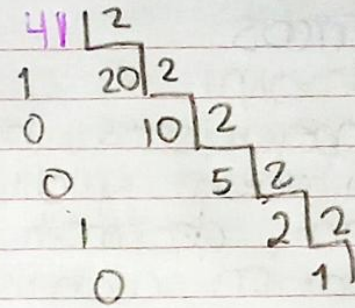 41 2
1 20 2
0 10 2
0 5 2
1 2 2
0 1